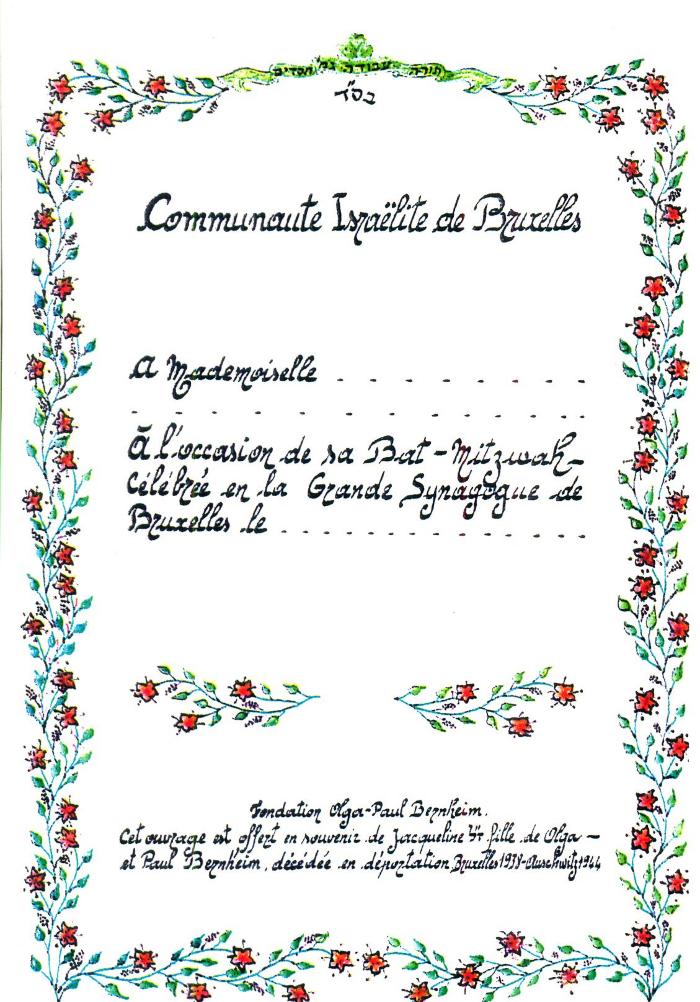 תורה עבודה גמ חסדים
בס״ד
Communaute Israëlite de Bruxelles
A Mademoiselle . . . . . . . . . .
. . . . . . . . . . . . . . . . . . . .
À l'occasion de sa Bat-Mitzwah
Célébrée en la Grande Synagogue de
Bruxelles le . . . . . . . . . . . . . . .
Fondation Olga-Paul Bernheim.
Cet ouvrage est offert en souvenir de Jacqueline fille de Olga
et Paul Bernheim, décédée en déportation Bruxelles 1938-Auschwitz 1944